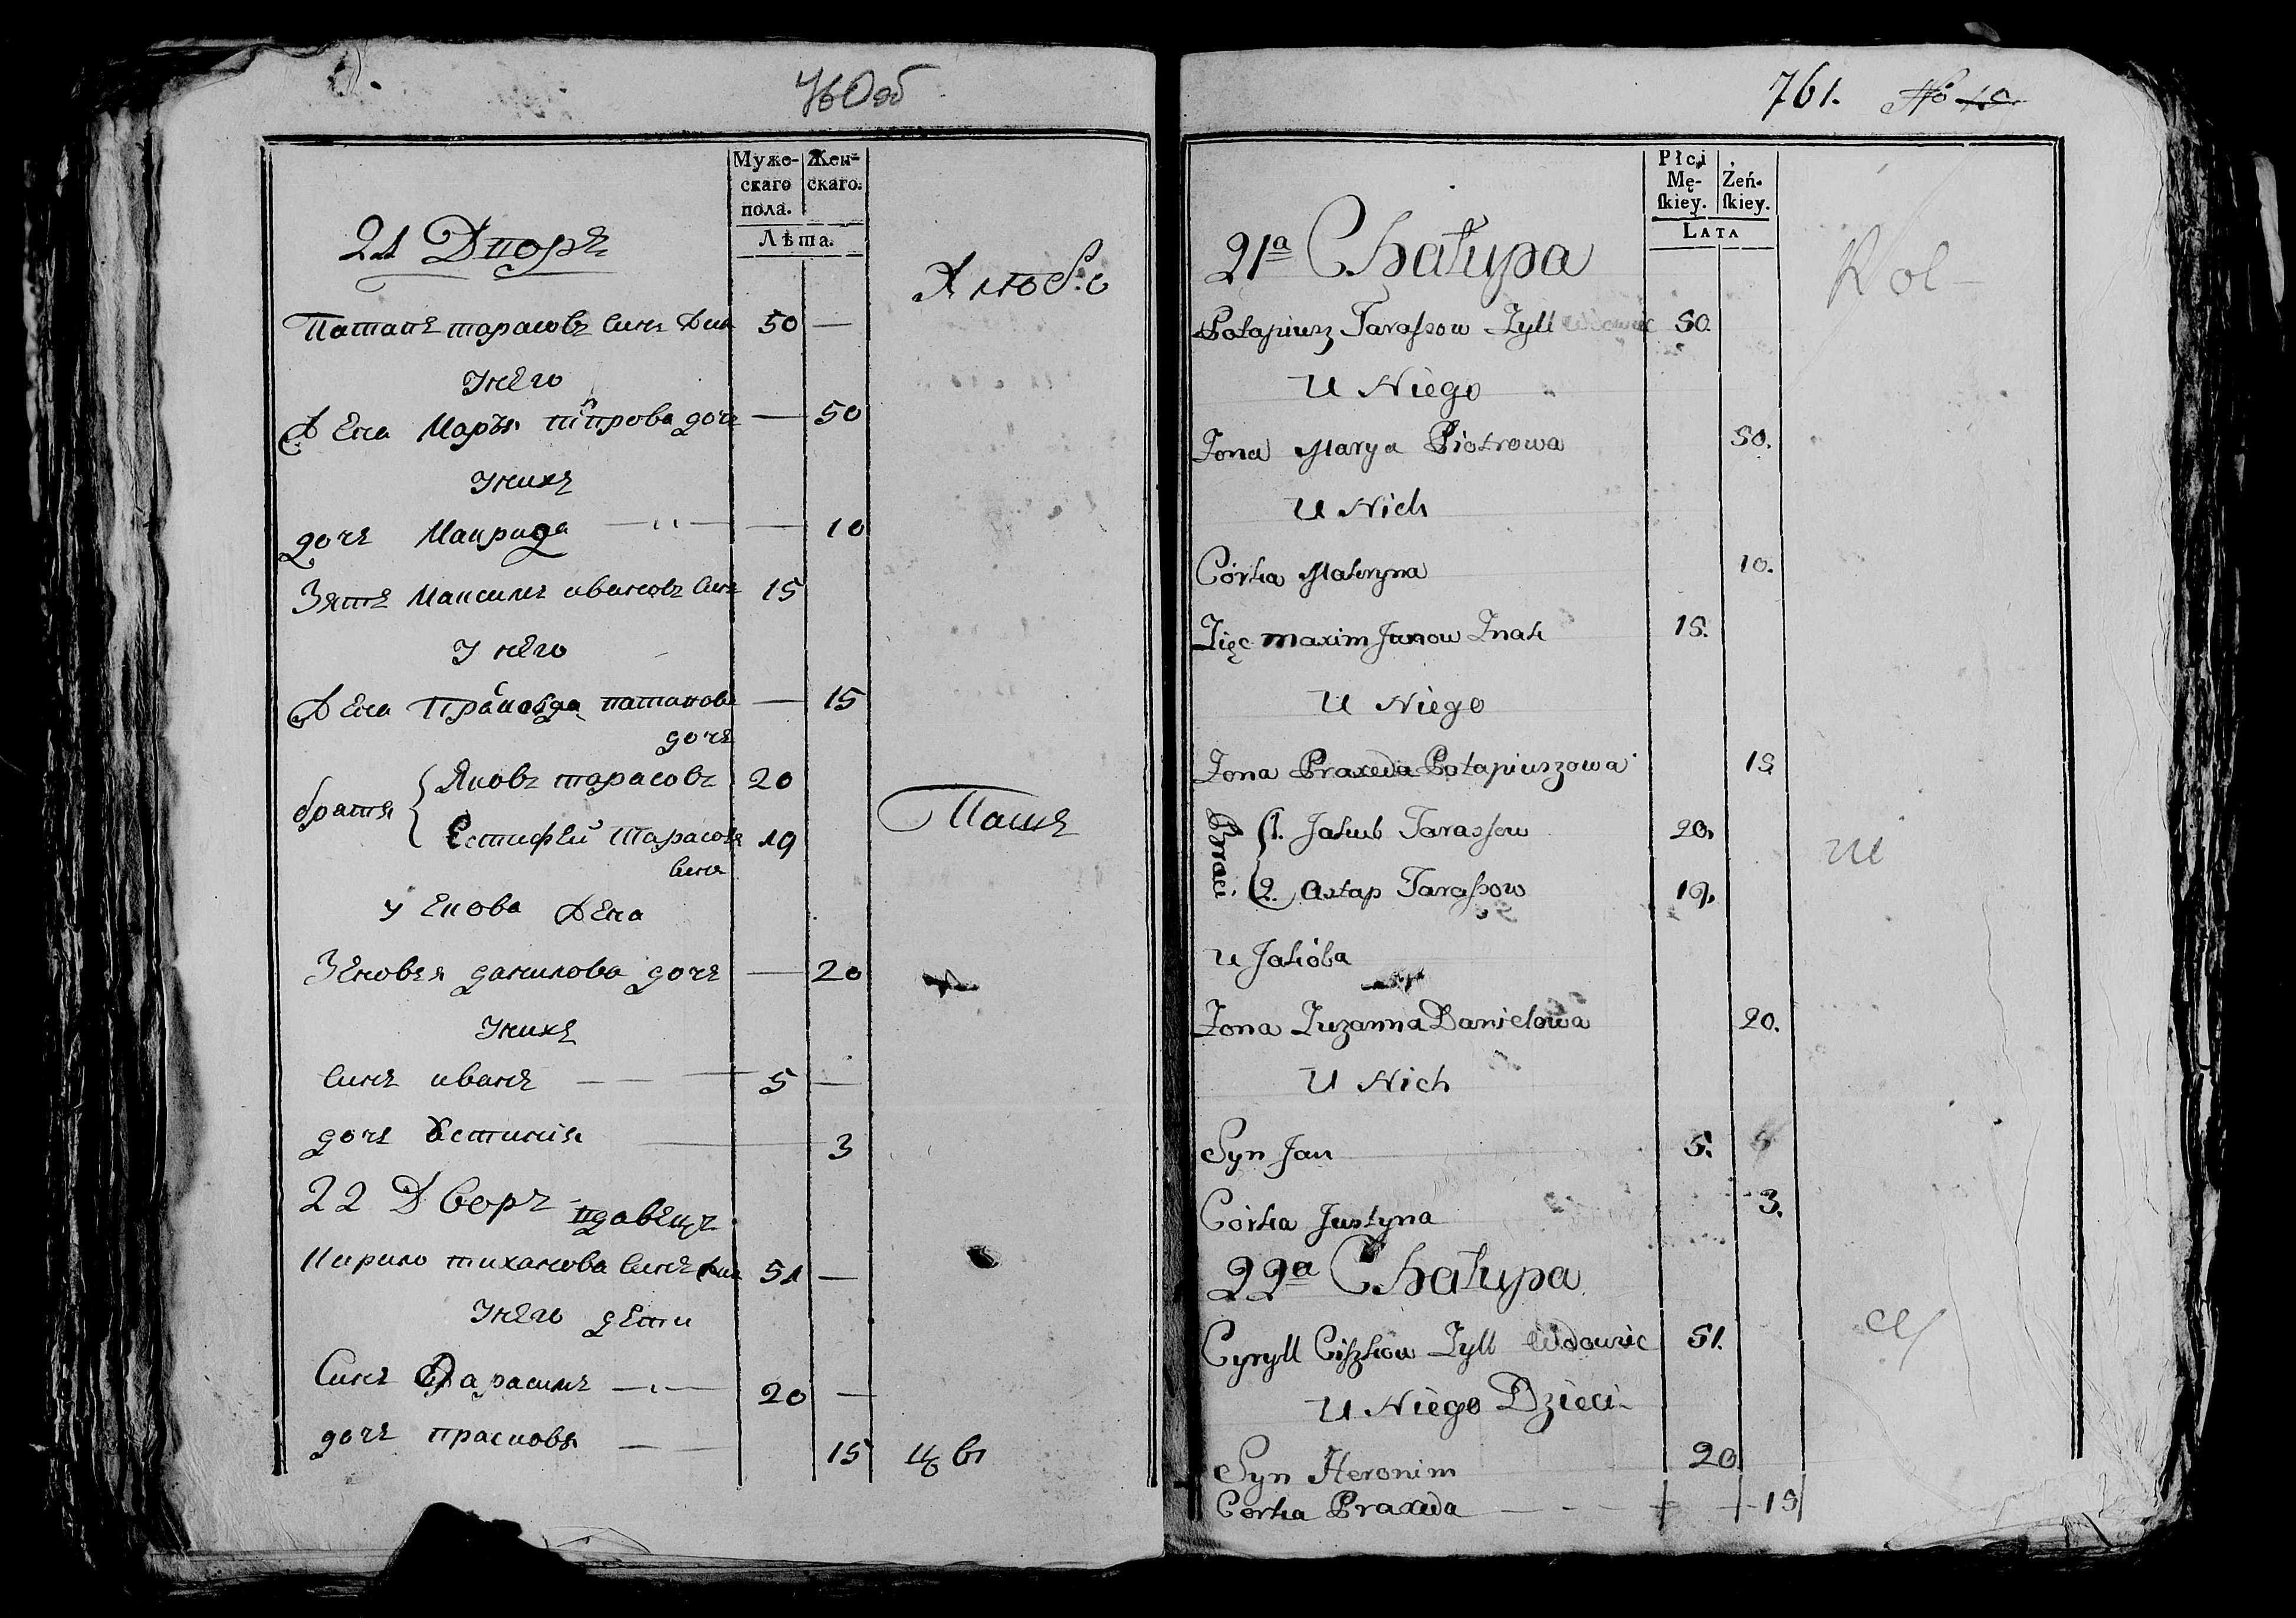 760об
Муже-
скаго
пола.
Жен-
скаго.
Лѣта.
21 Дворъ
Патапъ тарасовъ синъ 50 —
Унего
Жена Маръя птрова дочъ — 50
Унихъ
дочъ Макрида — 10
Зятъ Максимъ ивановъ синъ 15
У него
Жена Пракседа патапова — 15
дочъ
братя { Яковъ тарасовъ 20
Естифей тарасовъ 19
синъ
у Екова Жена
Зеновъя данилова дочъ — 20
Унихъ
синъ иванъ — 5 —
дочъ Устинія — 3
22 Дворъ вдавецъ
Кирило тихановъ синъ 51 —
Унего дети
Синъ Гарасимъ — 20 —
дочъ прасковя — 15
761. No
Płci
Mę-
ſkiey.
Żeń-
ſkiey.
LATA
21a Chałupa
Potapiusz Taraſsow Zyll 50.
U Niego
Zona Marya Piotrowa 50.
U Nich
Córka Makryna 10.
Zięc Maxim Janow Znak 15.
U Niego
Zona Praxeda Potapiuszowa 15.
Braci. { 1. Jakub Taraſsow 20.
2. Astap Taraſsow 19.
U Jakóba
Zona Zuzanna Danielowa 20.
U Nich
Syn Jan 5.
Córka Justyna 3.
22a Chałupa
Cyryll Ciſzkow Zyll Wdowiec 51.
U Niego Dzieci
Syn Heronim 20
Corka Praxeda — 15